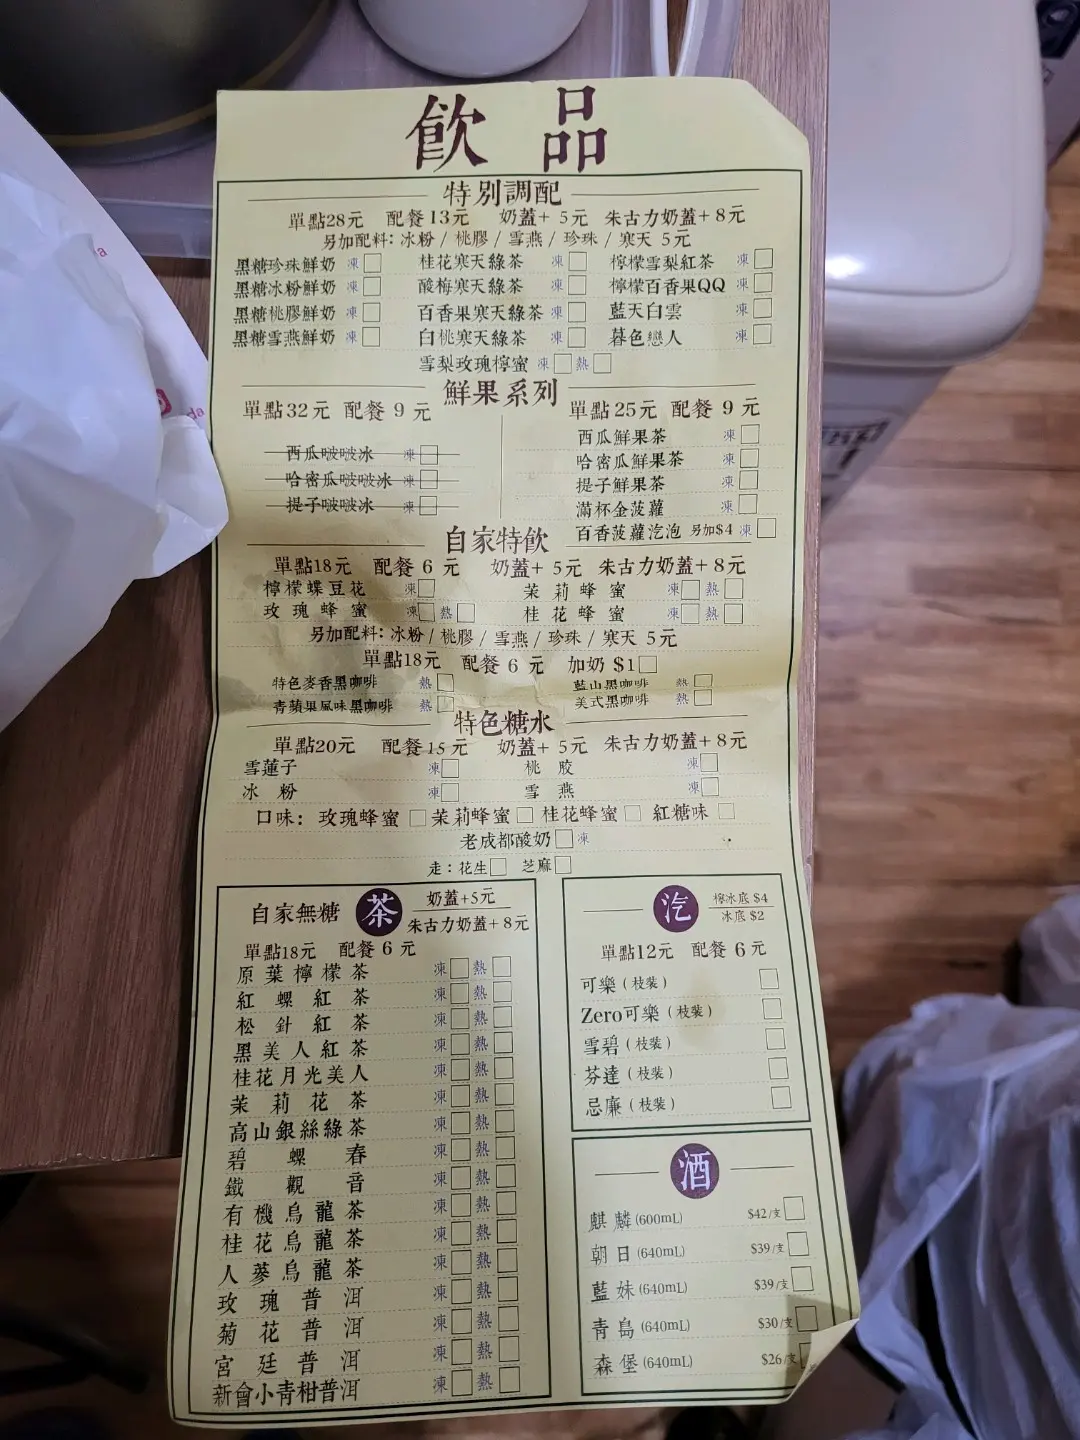 飲品
特別調配
單點28元 配餐13元 奶蓋+5元 朱古力奶蓋+8元
另加配料: 冰粉 / 桃膠 / 雪燕 / 珍珠 / 寒天 5元
黑糖珍珠鮮奶 凍 桂花寒天綠茶 凍 檸檬雪梨紅茶 凍
黑糖冰粉鮮奶 凍 酸梅寒天綠茶 凍 檸檬百香果QQ 凍
黑糖桃膠鮮奶 凍 百香果寒天綠茶 凍 藍天白雲 凍
黑糖雪燕鮮奶 凍 白桃寒天綠茶 凍 暮色戀人 凍
雪梨玫瑰檸蜜 凍 熱
鮮果系列
單點32元 配餐 9 元
西瓜啵啵冰 凍
哈密瓜啵啵冰 凍
提子啵啵冰 凍
單點25元 配餐 9 元
西瓜鮮果茶 凍
哈密瓜鮮果茶 凍
提子鮮果茶 凍
滿杯金菠蘿 凍
百香菠蘿汔泡 另加$4 凍
自家特飲
單點18元 配餐 6 元 奶蓋+5元 朱古力奶蓋+8元
檸檬蝶豆花 凍 茉莉蜂蜜 凍 熱
玫瑰蜂蜜 凍 熱 桂花蜂蜜 凍 熱
另加配料: 冰粉 / 桃膠 / 雪燕 / 珍珠 / 寒天 5元
單點18元 配餐 6 元 加奶 $1
特色麥香黑咖啡 熱 藍山黑咖啡 熱
青蘋果風味黑咖啡 熱 美式黑咖啡 熱
特色糖水
單點20元 配餐15元 奶蓋+5元 朱古力奶蓋+8元
雪蓮子 凍 桃胶 凍
冰粉 凍 雪燕 凍
口味: 玫瑰蜂蜜 茉莉蜂蜜 桂花蜂蜜 紅糖味
老成都酸奶 凍
走: 花生 芝麻
自家無糖 茶 奶蓋+5元
朱古力奶蓋+8元
單點18元 配餐 6 元
原葉檸檬茶 凍 熱
紅螺紅茶 凍 熱
松針紅茶 凍 熱
黑美人紅茶 凍 熱
桂花月光美人 凍 熱
茉莉花茶 凍 熱
高山銀絲綠茶 凍 熱
碧螺春 凍 熱
鐵觀音 凍 熱
有機烏龍茶 凍 熱
桂花烏龍茶 凍 熱
人蔘烏龍茶 凍 熱
玫瑰普洱 凍 熱
菊花普洱 凍 熱
宮廷普洱 凍 熱
新會小青柑普洱 凍 熱
汔 檸冰底 $4
冰底 $2
單點12元 配餐 6元
可樂 (枝裝)
Zero可樂 (枝裝)
雪碧 (枝裝)
芬達 (枝裝)
忌廉 (枝裝)
酒
麒麟 (600mL) $42/支
朝日 (640mL) $39/支
藍妹 (640mL) $39/支
青島 (640mL) $30/支
森堡 (640mL) $26/支
da